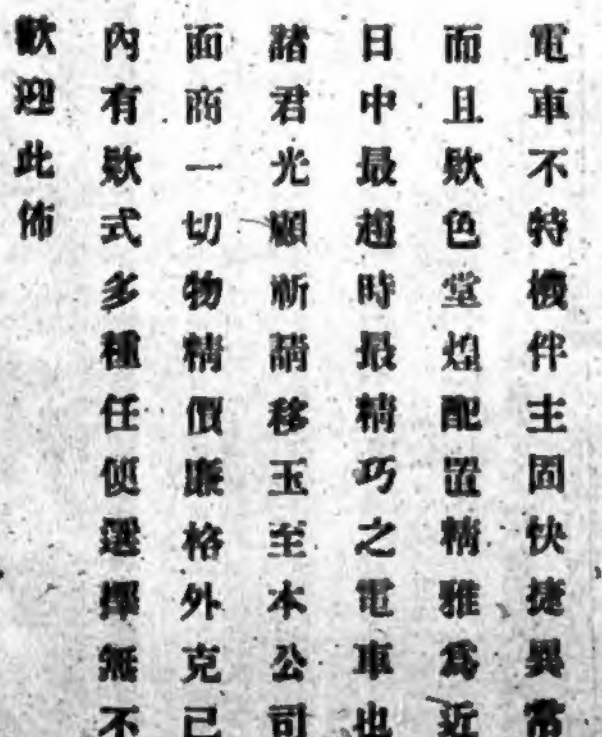 電車不特機件主固快捷異常
而且欵色堂煌配置精雅爲近
日中最趨時最精巧之電車也
諸君光顧祈請移玉至本公司
面商一切物精價廉格外克己
內有欵式多種任便選擇無不
歡迎此佈